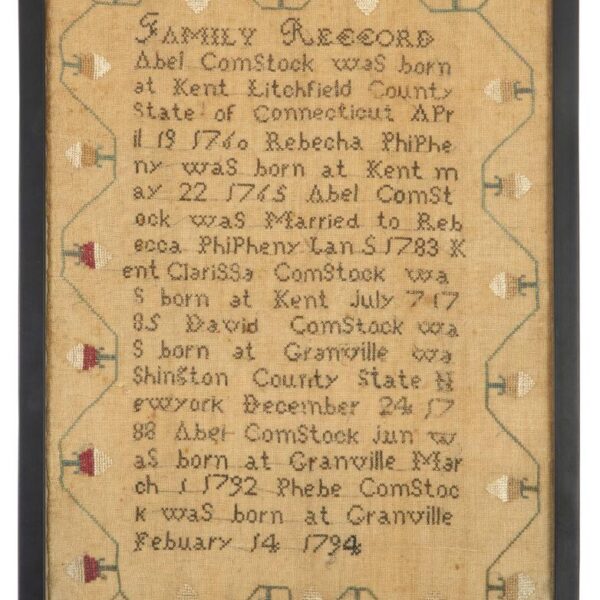 FAMILY RECCORD
Abel ComStock waS born
at Kent Litchfield County
State of Connecticut APr
il 19 1760 Rebecha PhiPhe
ny waS born at Kent m
ay 22 1765 Abel ComSt
ock waS Married to Reb
ecca PhiPheny Jan 5 1783 K
ent ClariSSa ComStock wa
S born at Kent July 7 17
85 David ComStock wa
S born at Granville wa
Shington County State N
ewyork December 24 17
88 Abel ComStock jun w
aS born at Granville Mar
ch 1 1792 Phebe ComStoc
k waS born at Granville
Febuary 14 1794